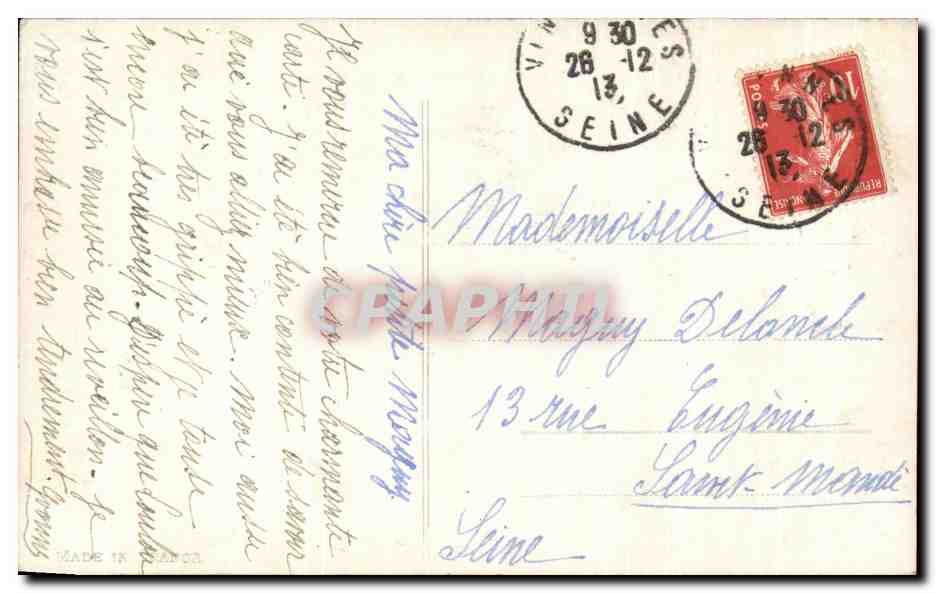 Ma chère petite Maguy
Je vous remercie de votre charmante
carte. J'ai été bien content de savoir
que vous allez mieux. Moi aussi
j'ai été très grippé et je tousse
encore beaucoup. que Loulou
s'est bien amusé au réveillon. Je
vous embrasse bien tendrement.
MADE IN FRANCE
VIN ES
9 30
26 -12
13,
SEINE
10
POSTES
REPUBLIQUE FRANÇAISE
9 30
26 12
13,
SEINE
Mademoiselle
Maguy Delande
13 rue Eugénie
Saint-Mandé
Seine
CPAPHIL